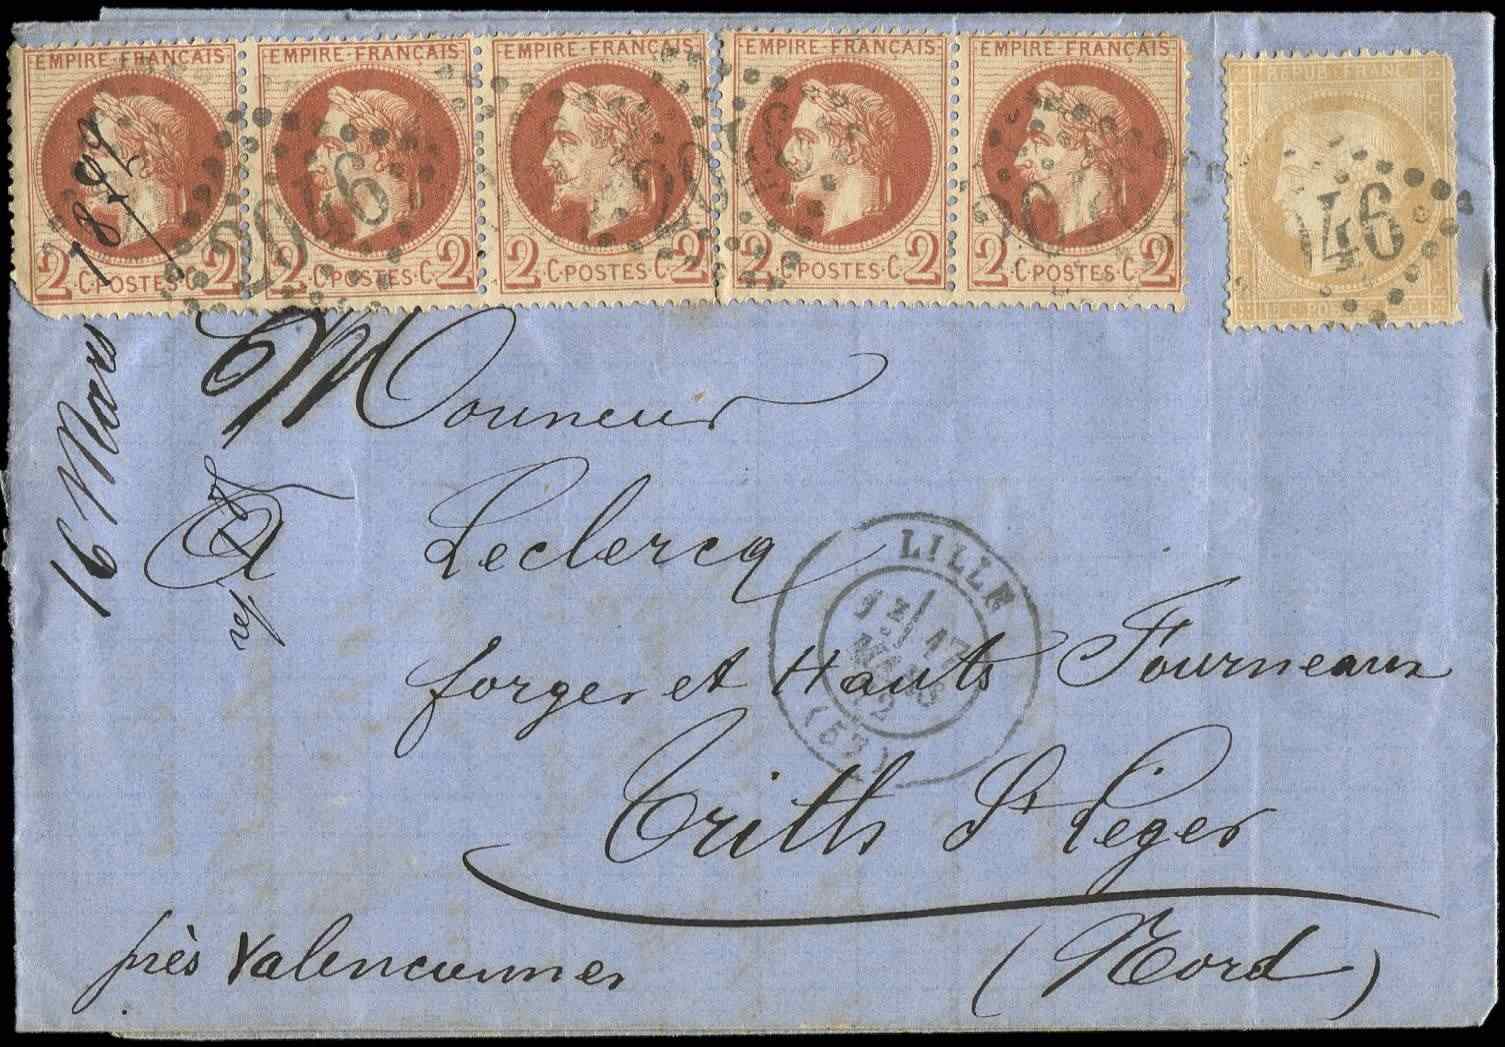 EMPIRE FRANÇAIS EMPIRE FRANÇAIS EMPIRE FRANÇAIS EMPIRE FRANÇAIS EMPIRE FRANÇAIS
REPUB. FRANC
2046
46
2 C·POSTES·C 2 2 C·POSTES·C 2 2 C·POSTES·C 2 2 C·POSTES·C 2 2 C·POSTES·C 2
16 Mars 1872
Monsieur
A Leclercq
LILLE
17
MARS
72
forges et Hauts Fourneaux
Trith St Leger
près Valenciennes
(Nord)